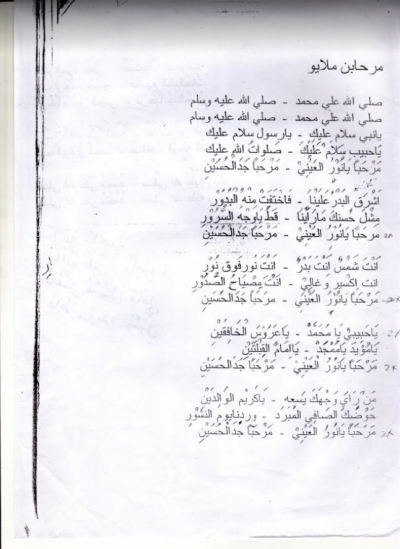 مرحابن ملايو
صلي الله علي محمد - صلي الله عليه وسلم
صلي الله علي محمد - صلي الله عليه وسام
يانبي سلام عليك - يارسول سلام عليك
ياحبيب سلام عليك - صلوات الله عليك
مرحبا يانور العيني - مرحبا جدالحسين
اشرق البدر علينا - فاختفت منه البدور
مثل حسنك مارأينا - قط ياوجه السرور
مرحبا يانور العيني - مرحبا جدالحسين ×2
انت شمس انت بدر - انت نور فوق نور
انت اكسير وغالي - انت مصباح الصدور
مرحبا يانور العيني - مرحبا جدالحسين ×2
ياحبيبي يا محمد - ياعروس الخافقين
يامؤيد ياممجد - ياامام القبلتين
مرحبا يانور العيني - مرحبا جدالحسين ×2
من رأي وجهك يسعه - ياكريم الوالدين
حوضك الصافي المبرد - وردنايوم النشور
مرحبا يانور العيني - مرحبا جدالحسين ×2